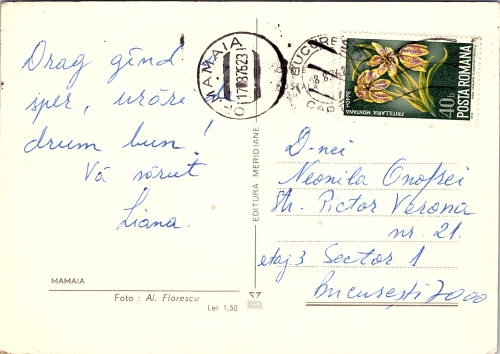 Drag gînd
sper, urăre
drum bun!
Vă sărut
Liana.
MAMAIA
Foto : Al. Florescu
Lei 1,50
EDITURA MERIDIANE
MAMAIA
17.8.76 23
BUCUREȘTI
40b
POSTA ROMANA
FRITILLARIA MONTANA
D-nei
Neonila Onofrei
Str. Pictor Verona
nr. 21.
etaj.3 Sector 1
București 7000